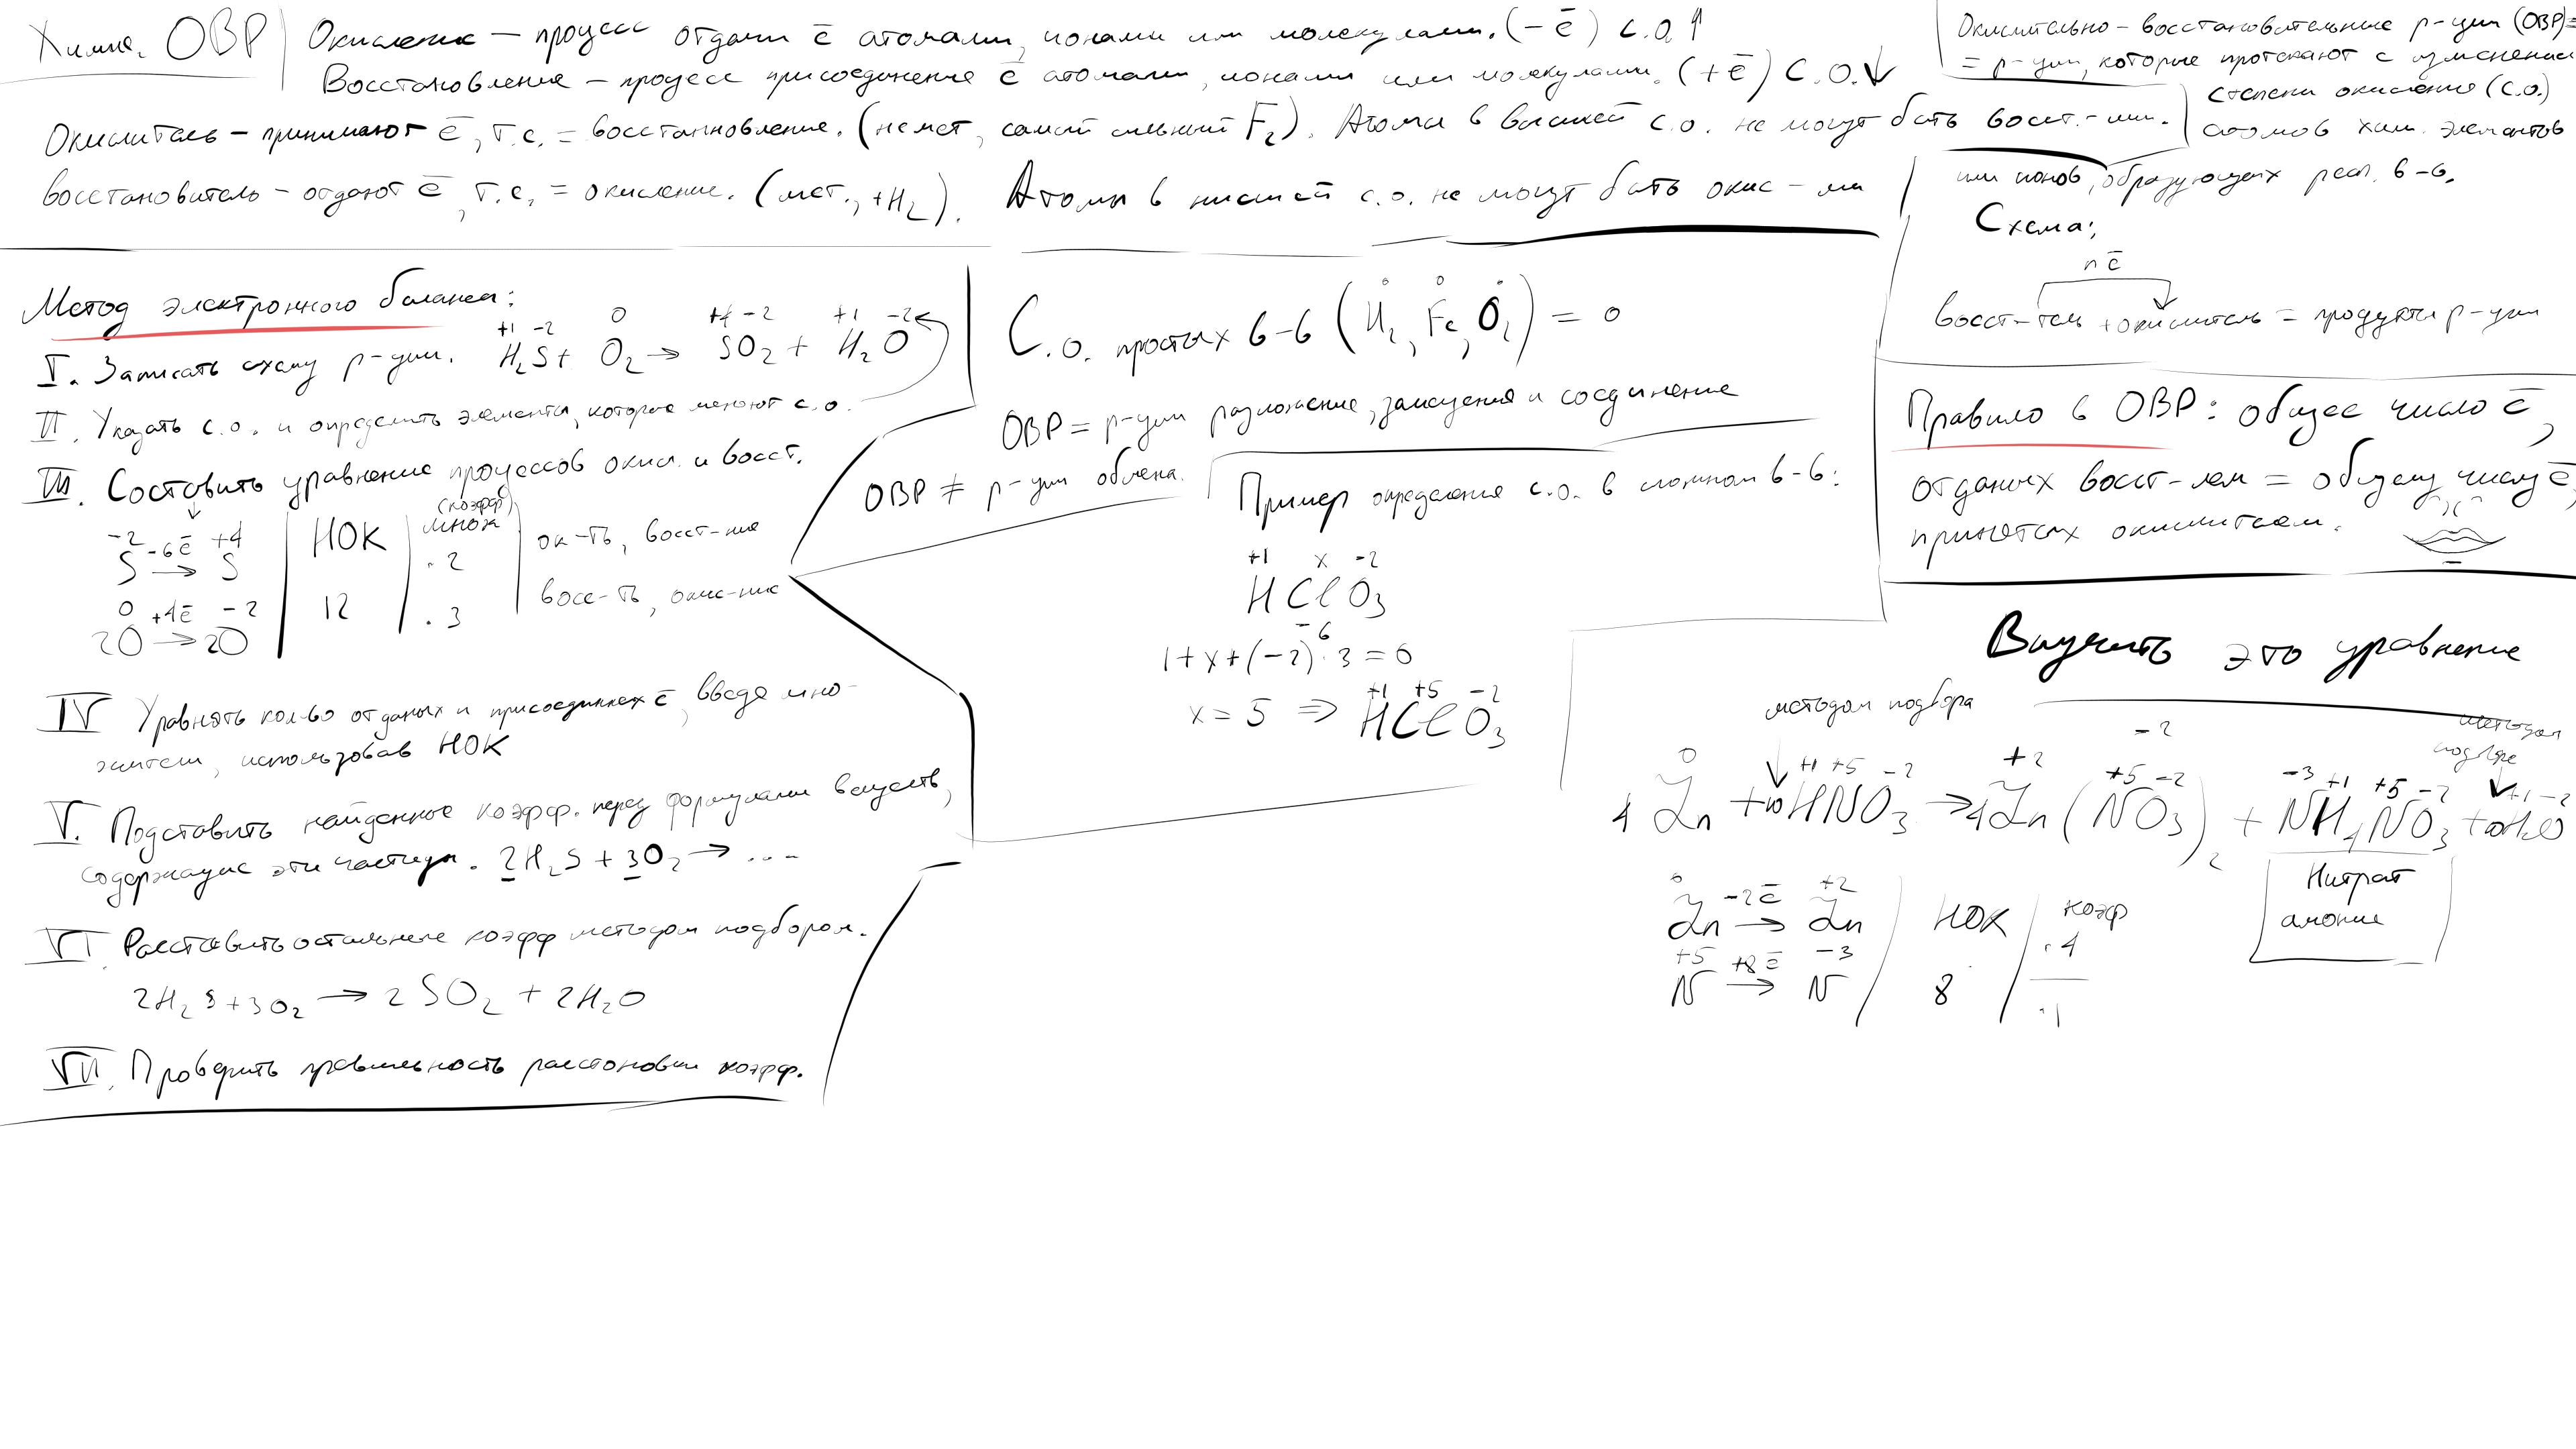 Химия. ОВР
Окисление – процесс отдачи ē атомами, ионами или молекулами. (– ē) С.О.↑
Восстановление – процесс присоединение ē атомами, ионами или молекулами. (+ ē) С.О.↓
Окислитель – принимают ē, т.е. = восстанновление. (немет, самый сильный F₂). Атомы в высшей с.о. не могут быть восст.-ми.
восстановитель – отдают ē, т.е. = окисление. (мет., +H₂). Атомы в низшей с.о. не могут быть окис – ми
Окислительно – восстановительные р-ции (ОВР)=
= р-ции, которые протекают с изменением
степени окисления (С.О.)
атомов хим. элементов
или ионов, образующих реаг. в-в.
Схема:
n ē
восст-тель + окислитель = продукты р-ции
Метод электронного баланса:
I. Записать схему р-ции. H₂S + O₂ → SO₂ + H₂O
+1 -2 0 +4 -2 +1 -2
II. Указать с.о. и определить элементы, которые меняют с.о.
III. Составить уравнение процессов окисл. и восст.
-2 -6ē +4
S → S
НОК
(коэфф)
множ
. 2
ок-ть, восст-ние
0 +4ē -2
2O → 2O
12
. 3
восс-ть, окис-ние
IV Уравнять кол-во отданых и присоединных ē, введя мно-
жители, использовав НОК
V. Подставить найденные коэфф. перед формулами веществ,
содержащие эти частицы. 2H₂S + 3O₂ → ....
VI Расставить остальные коэфф методом подбором.
2H₂S + 3O₂ → 2SO₂ + 2H₂O
VII. Проверить правильность расстоновки коэфф.
С.О. простых в-в (H₂, Fe, O₂) = 0
0 0 0
ОВР = р-ции разложение, замещения и соединение
ОВР ≠ р-ции обмена.
Пример определения с.о. в сложном в-в:
+1 x -2
HClO₃
-6
1+x+(-2)·3=0
x = 5 ⇒ HClO₃
+1 +5 -2
Правило в ОВР: общее число ē,
отданых восст-лем = общему числу ē,
принятых окислителем.
Выучить это уравнение
методом подбора
методом
подбора
0 +1 +5 -2 +2 +5 -2 -2 -3 +1 +5 -2 +1 -2
4 Zn + 10HNO₃ → 4Zn(NO₃)₂ + NH₄NO₃ + H₂O
0 -2ē +2
Zn → Zn
НОК
коэф
. 4
+5 +8ē -3
N → N
8
. 1
Нитрат
амония